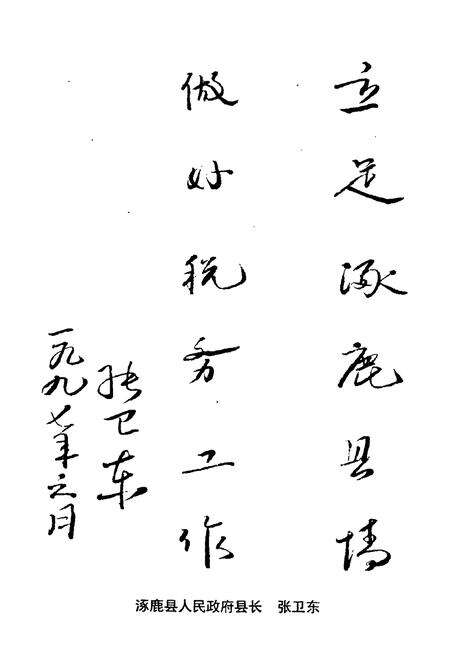 立足涿鹿县情
做好税务工作
张卫东
一九九七年六月
涿鹿县人民政府县长 张卫东